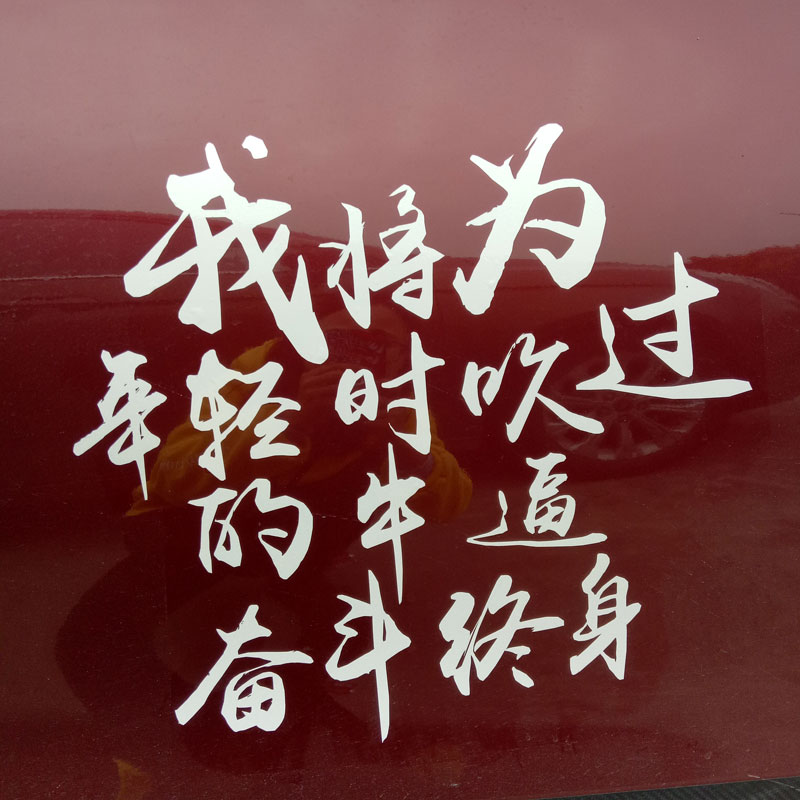 我将为过
年轻时吹
的牛逼
奋斗终身